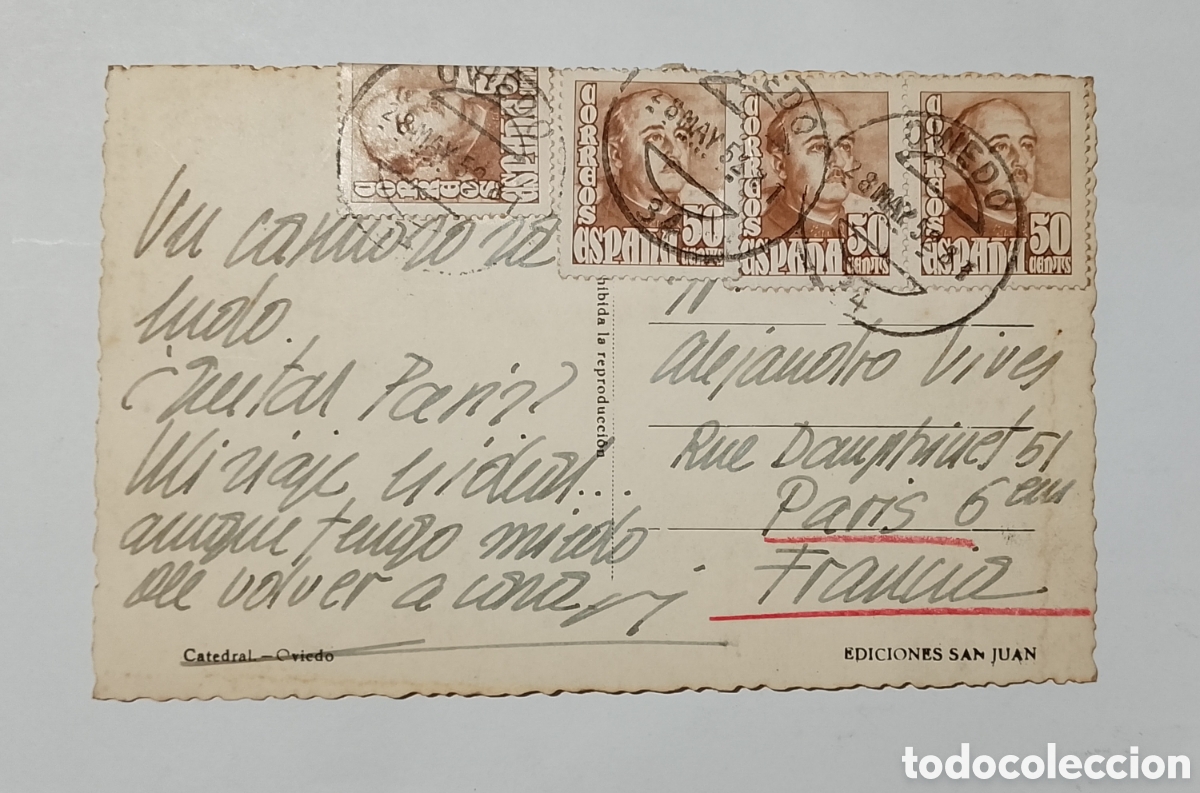 CORREOS
ESPAÑA
CORREOS
ESPAÑA
50
CENTS
CORREOS
ESPAÑA
50
CENTS
CORREOS
ESPAÑA
50
CENTS
OVIEDO
28 MAY.
OVIEDO
28 MAY. 5
34
OVIEDO
28 MAY. 5
34
Un cariñoso sa
ludo.
¿Que tal Paris?
Mi viaje, ideal...
aunque tengo miedo
de volver a casa
hibida la reproducción
Alejandro Vives
Rue Dauphines 51
Paris 6 em
Francia
Catedral.-Oviedo
EDICIONES SAN JUAN
todocoleccion